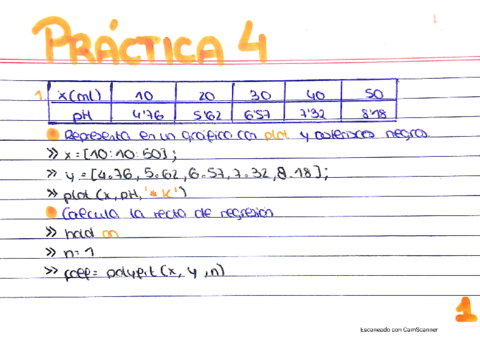 PRÁCTICA 4
1 x(ml) 10 20 30 40 50
pH 4'76 5'62 6'57 7'32 8'18
Representa en un gráfico con plot y asteriscos negros
>> x=[10:10:50];
>> y=[4.76,5.62,6.57,7.32,8.18];
>> plot(x,pH,'*k')
Calcula la recta de regresión
>> hold on
>> n=1
>> coef=polyfit(x,y,n)
1
Escaneado con CamScanner